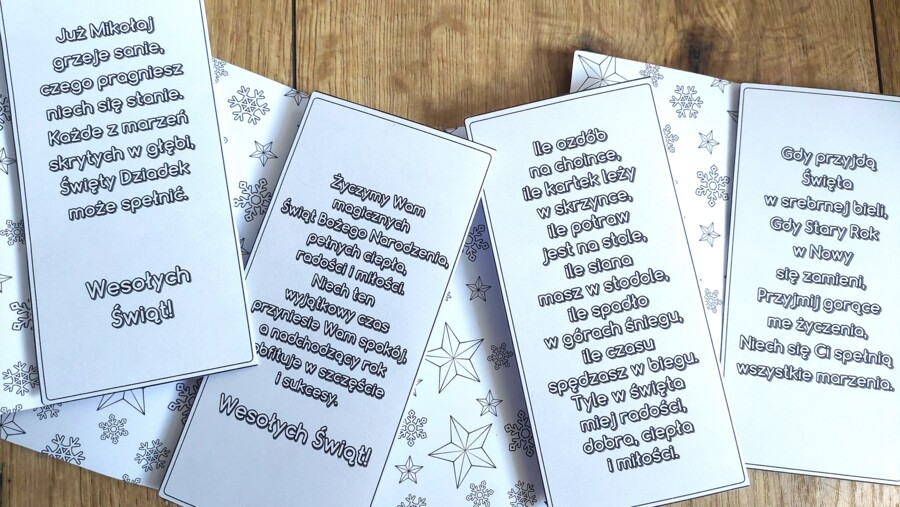 Już Mikołaj
grzeje sanie,
czego pragniesz
niech się stanie.
Każde z marzeń
skrytych w głębi,
Święty Dziadek
może spełnić.
Wesołych
Świąt!
Życzymy Wam
magicznych
Świąt Bożego Narodzenia,
pełnych ciepła,
radości i miłości.
Niech ten
wyjątkowy czas
przyniesie Wam spokój,
a nadchodzący rok
obfituje w szczęście
i sukcesy.
Wesołych Świąt!
Ile ozdób
na choince,
ile kartek leży
w skrzynce,
ile potraw
jest na stole,
ile siana
masz w stodole,
ile spadło
w górach śniegu,
ile czasu
spędzasz w biegu.
Tyle w święta
miej radości,
dobra, ciepła
i miłości.
Gdy przyjdą
Święta
w srebrnej bieli,
Gdy Stary Rok
w Nowy
się zamieni,
Przyjmij gorące
me życzenia,
Niech się Ci spełnią
wszystkie marzenia.